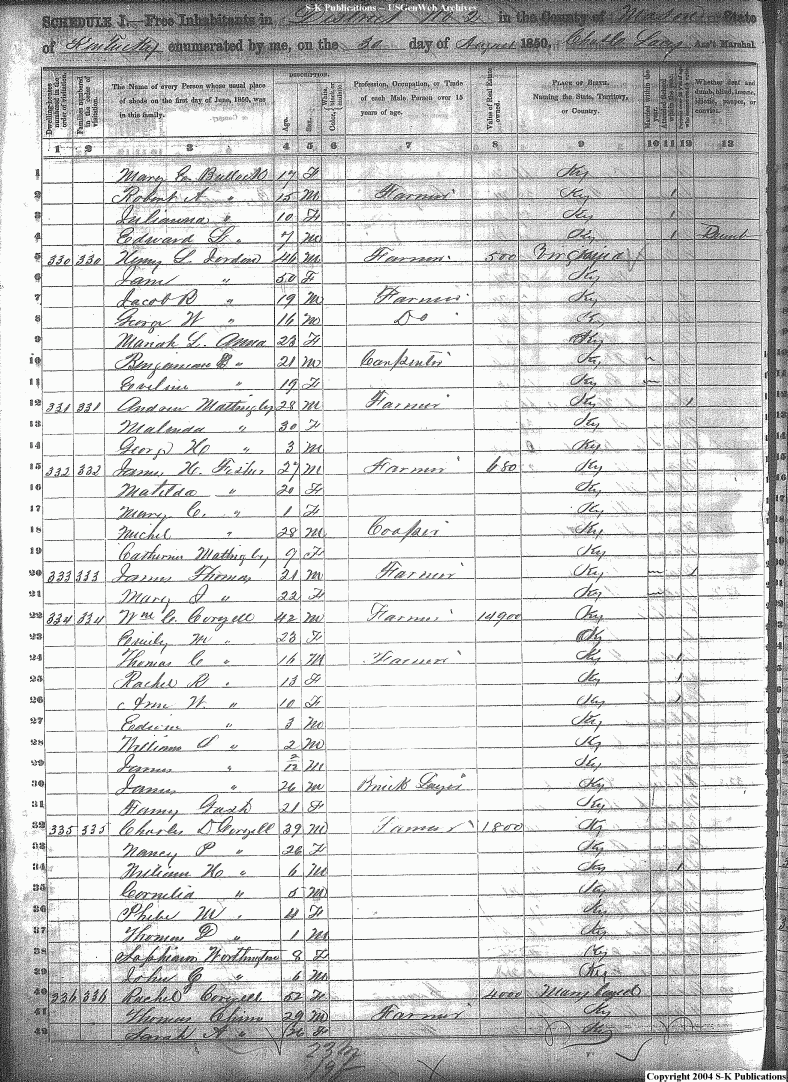 S-K Publications – USGenWeb Archives
SCHEDULE I.—Free Inhabitants in District No 2 in the County of Mason State
of Kentucky enumerated by me, on the 30 day of August 1850. Ass't Marshal.
Dwelling-houses numbered in the order of visitation.
Families numbered in the order of visitation.
The Name of every Person whose usual place of abode on the first day of June, 1850, was in this family.
DESCRIPTION.
Age.
Sex.
Color,
Profession, Occupation, or Trade of each Male Person over 15 years of age.
Value of Real Estate owned.
PLACE OF BIRTH, Naming the State, Territory, or Country.
Married within the year.
Whether deaf and dumb, blind, insane, idiotic, pauper, or convict.
1 2 3 4 5 6 7 8 9 10 11 12 13
1 Mary E. Bullock 17 F Ky
2 Robert A " 15 M Farmer Ky 1
3 Julianna " 10 F Ky 1
4 Edward L. " 7 M Ky 1 Dumb
5 330 330 Henry L. Jordan 46 M Farmer 500 Virginia
6 Jane " 50 F Ky
7 Jacob B " 19 M Farmer Ky
8 George W " 16 M Do Ky
9 Mariah L. Anna 23 F Ky
10 Benjamin B " 21 M Carpenter Ky
11 Eveline " 19 F Ky
12 331 331 Andrew Mattingly 28 M Farmer Ky 1
13 Malinda " 30 F Ky
14 George H " 3 M Ky
15 332 332 James H. Fisher 27 M Farmer 680 Ky
16 Matilda " 20 F Ky
17 Mary C. " 1 F Ky
18 Michel " 28 M Cooper Ky
19 Catherine Mattingly 9 F Ky
20 333 333 James Thomas 21 M Farmer Ky 1
21 Mary J " 22 F Ky
22 334 334 Wm C. Coryell 42 M Farmer 14900 Ky
23 Emily M " 23 F Ky
24 Thomas C " 16 M Farmer Ky 1
25 Rachel R " 13 F Ky 1
26 Ann W " 10 F Ky 1
27 Edwin " 3 M Ky
28 William S " 2 M Ky
29 James " 2/12 M Ky
30 James " 26 M Brick Layer Ky
31 Fanny Gash 21 F Ky
32 335 335 Charles D Coryell 39 M Farmer 1800 Ky
33 Nancy P " 26 F Ky
34 William H " 6 M Ky 1
35 Cornelia " 5 M Ky
36 Phebe M " 4 F Ky
37 Thomas D " 1 M Ky
38 Worthington 8 F Ky
39 John G " 6 M Ky
40 336 336 Rachel Coryell 52 F 4000 Maryland
41 Thomas Chinn 29 M Farmer Ky
42 Sarah A " 36 F Ky
Copyright 2004 S-K Publications